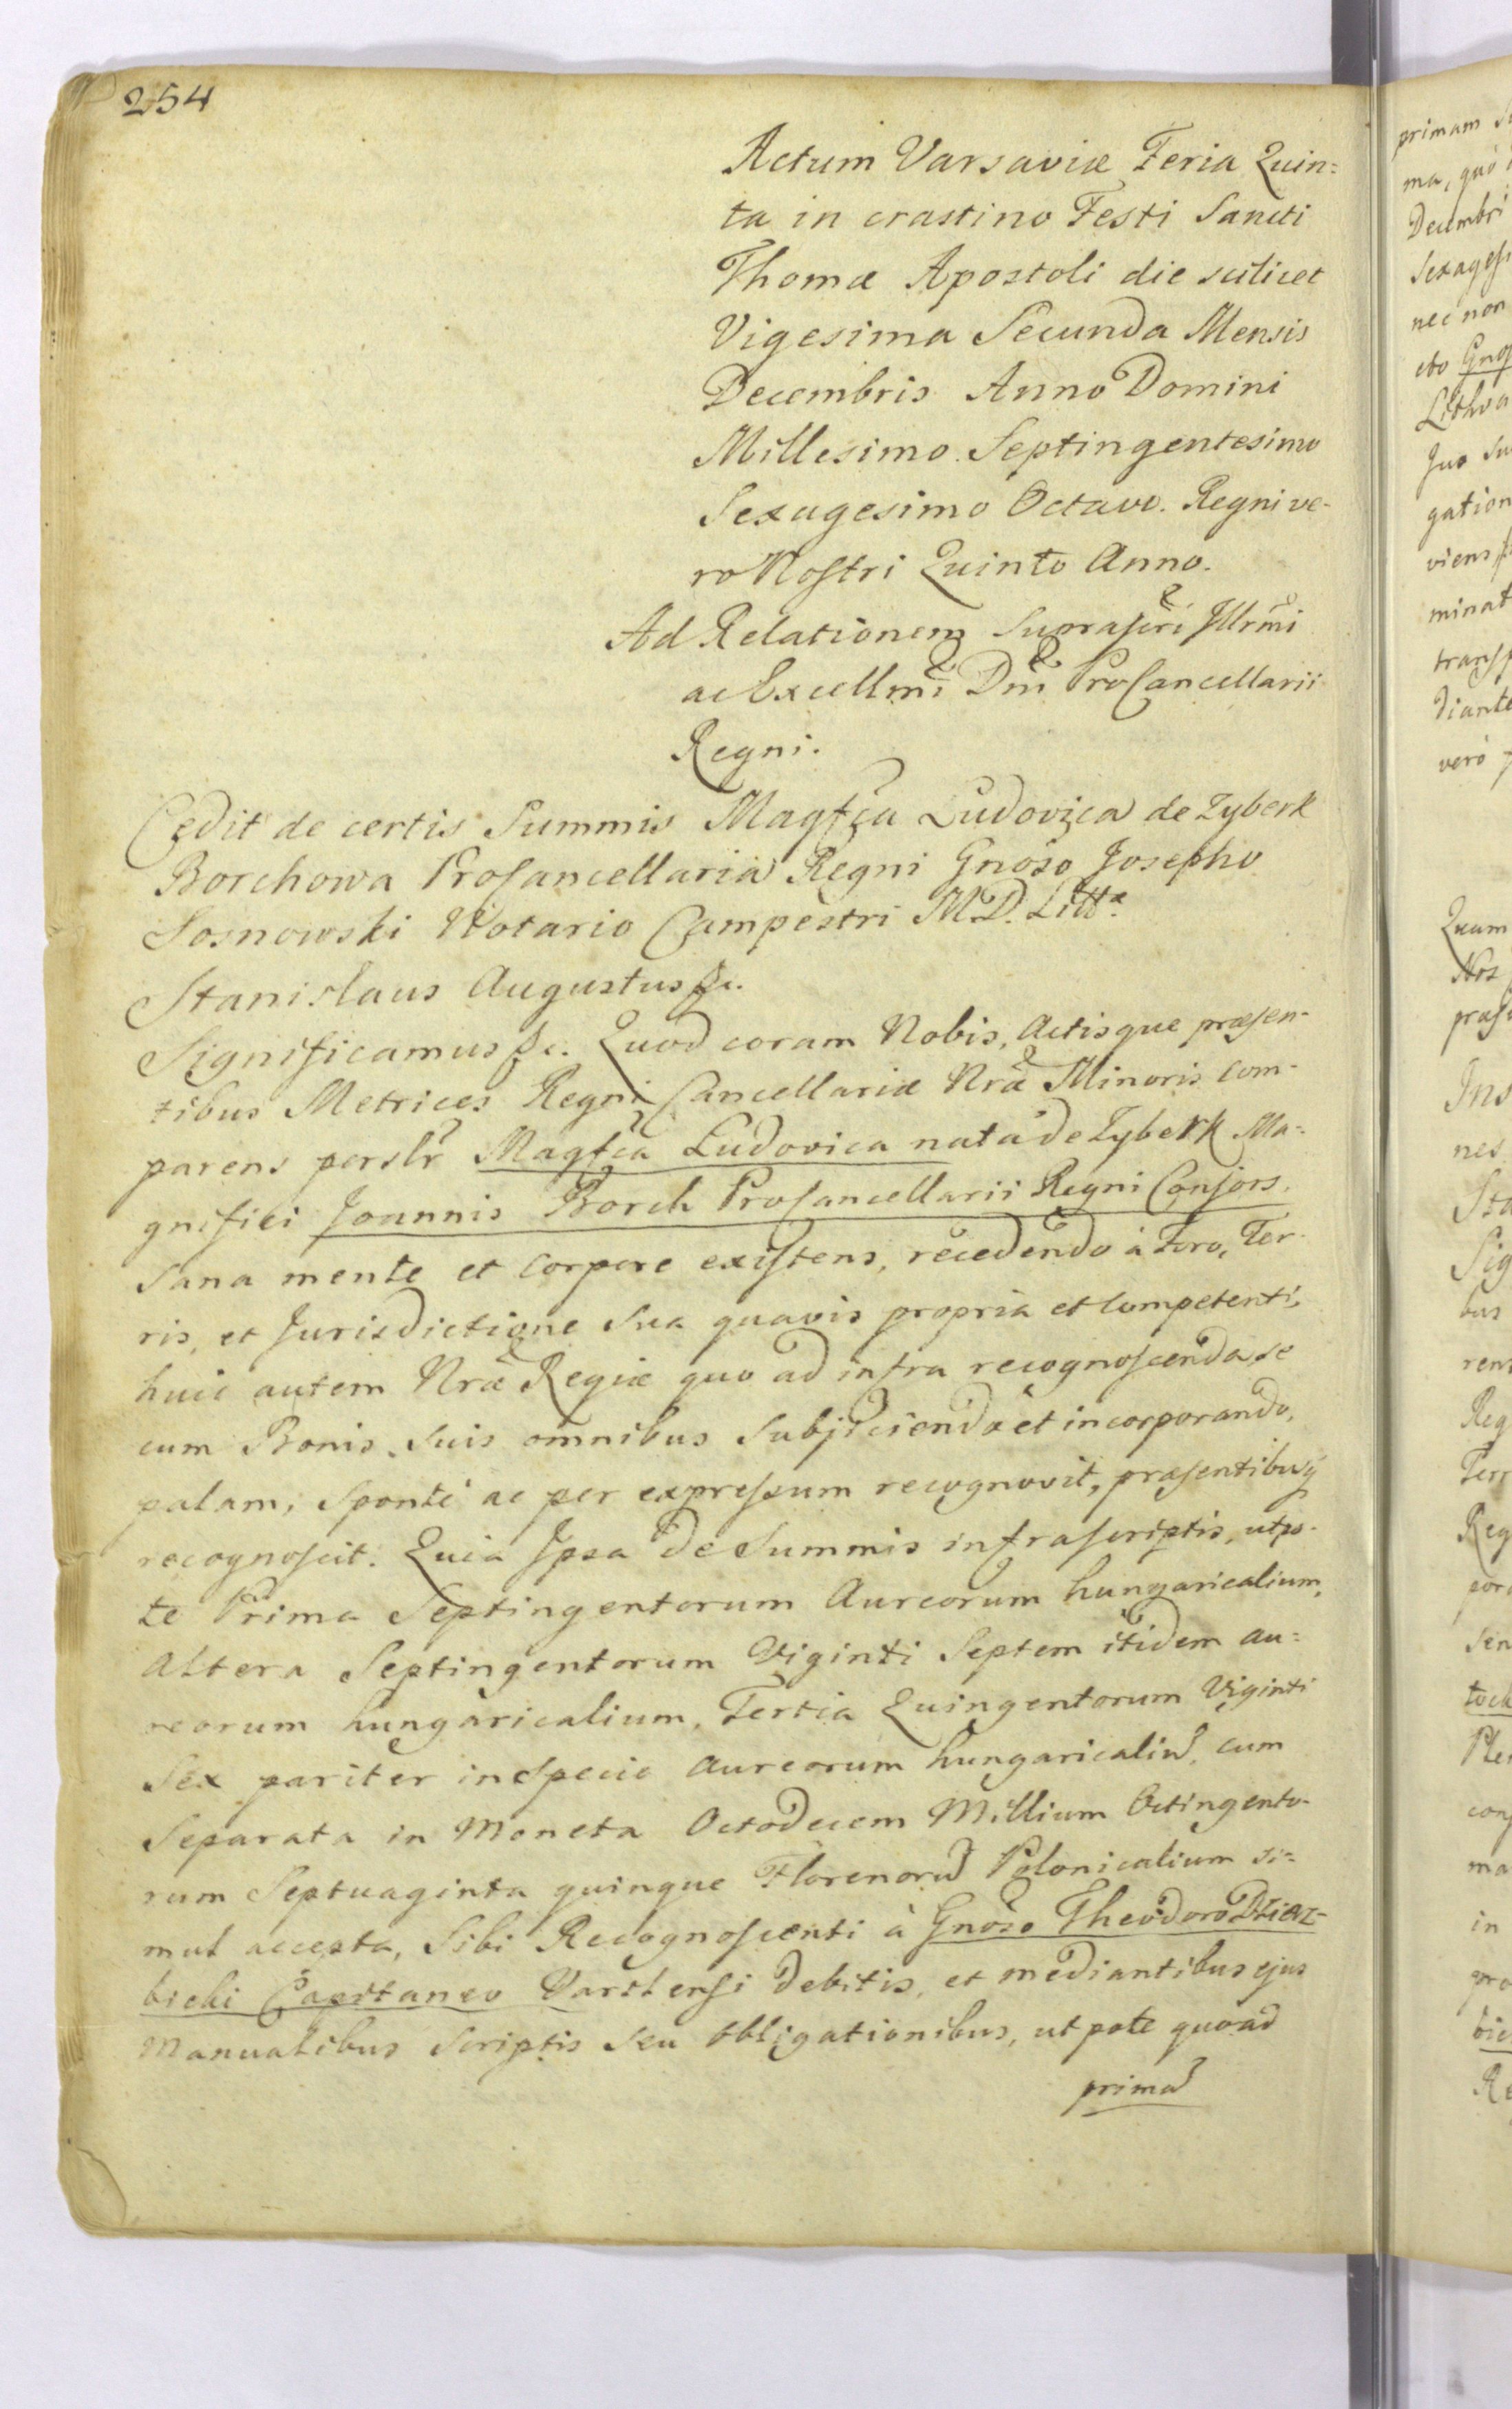 254
Actum Varsaviæ Feria Quin=
ta in crastino Festi Sancti
Thomæ Apostoli die scilicet
Vigesima Secunda Mensis
Decembris Anno Domini
Millesimo Septingentesimo
Sexagesimo Octavo. Regni ve-
ro Nostri Quinto Anno.
Ad Relationem Suprascri Illrmi
ac Excellmi Dni ProCancellarii
Regni.
Cedit de certis Summis Magfca Ludovica de Zyberk
Borchowa ProCancellaria Regni Gnoso Josepho
Sosnowski Notario Campestri M.D. Litt.
Stanislaus Augustus &c.
Significamus &c. Quod coram Nobis, Actisque præsen-
tibus Metrices Regni Cancellariæ Nræ Minoris com-
parens perslr Magfca Ludovica nata de Zyberk Ma=
gnifici Joannis Borch ProCancellarii Regni Consors.
Sana mente et corpore existens, recedendo à Foro, Ter-
ris, et Jurisdictione sua quavis propria et competenti,
huic autem Nræ Regiæ quo ad infra recognoscenda se
cum Bonis suis omnibus subjiciendo et incorporando,
palam, sponte ac per expressum recognovit, præsentibusq
recognoscit. Quia Ipsa de Summis infrascriptis, utpo-
te Prima Septingentorum Aureorum hungaricalium,
Altera Septingentorum Viginti Septem itidem au=
reorum hungaricalium, Tertia Quingentorum Viginti
Sex pariter in specie aureorum hungaricaliu, cum
Separata in Moneta Octodecem Millium Octingento-
rum Septuaginta quinque Florenoru Polonicalium si=
mul accepta, Sibi Recognoscenti à Gnoso Theodoro Dzierz-
bicki Capitaneo Varthensi debitis, et mediantibus ejus
Manualibus Scriptis seu Obligationibus, utpote quoad
prima
primam
ma, quo
Decembri
Sexages
nec non
cto Gnos
Lithva
Jus su
gation
viens
minat
transf
diante
vero
Quum
Nos
præse
Ins
nes
Sta
Sig
bus
rens
Reg
Terr
Reg
por
sen
tock
Ple
con
ma
in
pro
bic
Re